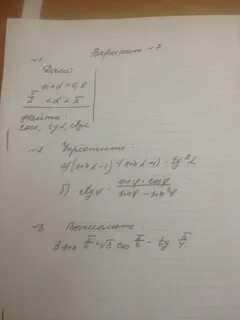 Вариант №2.
№1
Дано
sin α = 0,8
π/2 < α < π
Найти:
cos α, tg α, ctg α
№2 Упростить:
а) (sin α - 1) · (sin α + 1) · tg² α
б) ctg φ · (sin φ - cos φ)/(sin φ - sin³ φ)
№3 Вычислить:
3 sin π/6 + √3 cos π/6 - tg π/4